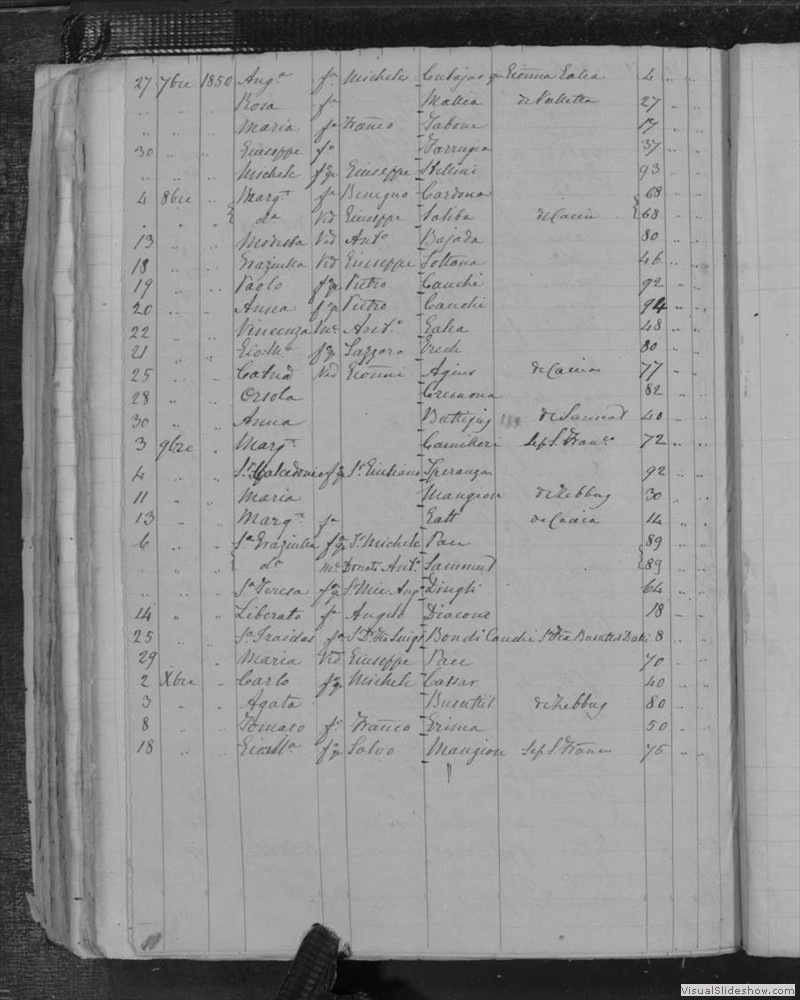 27 7bre 1850 Ang.a fa Michele Cubajar Giovna Galea 4 .. ..
.. .. .. Rosa fa Mattia de Valletta 27 .. ..
.. .. .. Maria fa Franco Tabone 17 .. ..
30 .. .. Giuseppe fo Farrugia 37 .. ..
.. .. .. Michele Giuseppe Stellini 93 .. ..
4 8bre .. Marg.a fa Benigno Cardona 68 .. ..
.. .. .. da Vid Giuseppe Saliba de Caccia 68 .. ..
13 .. .. Modesta Vid Anto Bajada 80 .. ..
18 .. .. Graziulla Vid Giuseppe Sultana 46 .. ..
19 .. .. Paolo Pietro Cauchi 92 .. ..
20 .. .. Anna Pietro Cauchi 94 .. ..
22 .. .. Vincenza Ant.o Galea 48 .. ..
21 .. .. Gio:Ma Lazzaro Erech 80 .. ..
25 .. .. Catna Vid Gionni Agius de Caccia 77 .. ..
28 .. .. Orsola Cremona 82 .. ..
30 .. .. Anna Buttigieg de Sannat 40 .. ..
3 9bre .. Marg.a Camilleri Sep S. Franco 72 .. ..
4 .. .. Sr Calcedonio Sr Giuliano Speranza 92 .. ..
11 .. .. Maria Mangion de Zebbug 30 .. ..
13 .. .. Marg.a fa Gatt de Caccia 14 .. ..
6 .. .. Sa Graziulla Sr Michele Pace 89 .. ..
.. .. .. da Donato Anto Sammut 89 .. ..
.. .. .. Sa Teresa Sr Mic: Ang.o Dingli 64 .. ..
14 .. .. Liberato fo Angelo Diacono 18 .. ..
25 .. .. Luigi Bondi Cauchi Busuttil 8 .. ..
29 .. .. Maria Vid Giuseppe Pace 70 .. ..
2 Xbre .. Carlo Michele Cassar 40 .. ..
3 .. .. Agata Busuttil de Zebbug 80 .. ..
8 .. .. Tomaso fo Franco Grima 50 .. ..
18 .. .. Gio:Ma Salvo Mangion Sep S. Franco 75 .. ..
VisualSlideshow.com